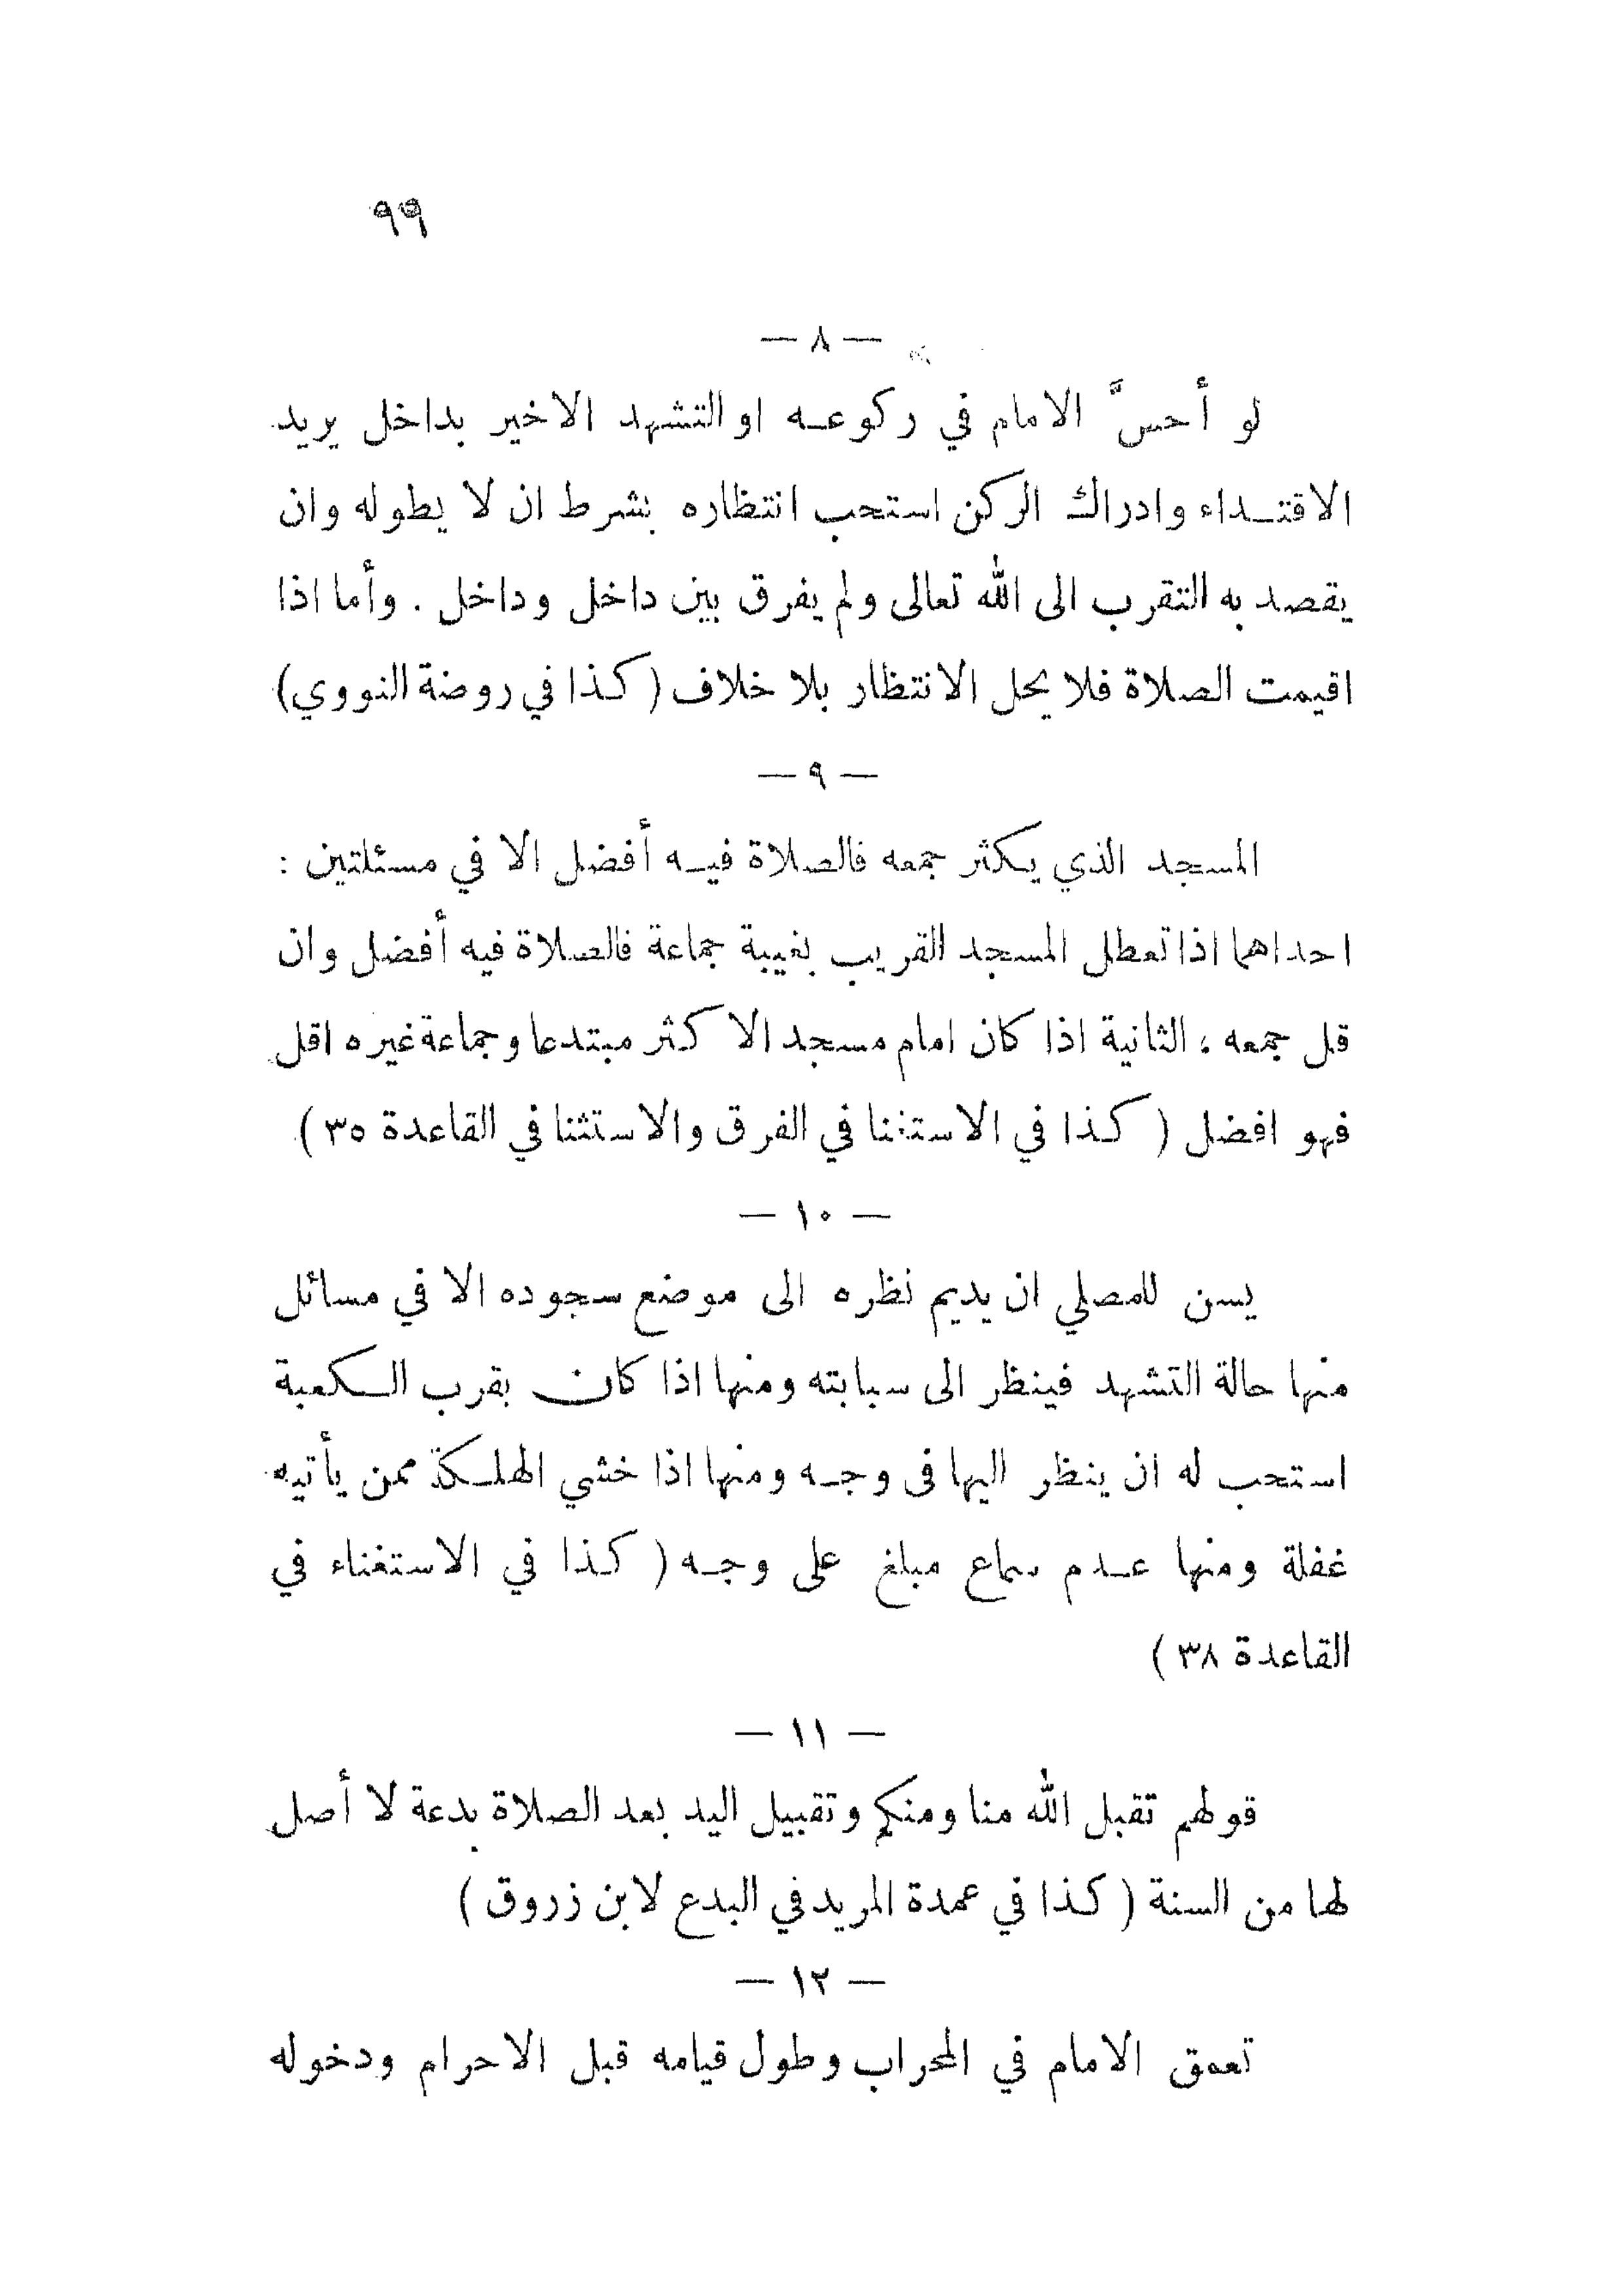 ٩٩
— ٨ —
لو أحسَّ الامام في ركوعه او التشهد الاخير بداخل يريد
الاقتداء وادراك الركن استحب انتظاره بشرط ان لا يطوله وان
يقصد به التقرب الى الله تعالى ولم يفرق بين داخل وداخل . وأما اذا
اقيمت الصلاة فلا يحل الانتظار بلا خلاف ( كذا في روضة النووي)
— ٩ —
المسجد الذي يكثر جمعه فالصلاة فيه أفضل الا في مسئلتين :
احداهما اذا تعطل المسجد القريب بغيبة جماعة فالصلاة فيه أفضل وان
قل جمعه ، الثانية اذا كان امام مسجد الاكثر مبتدعا وجماعة غيره اقل
فهو افضل ( كذا في الاستغنا في الفرق والاستثنا في القاعدة ٣٥ )
— ١٠ —
يسن للمصلي ان يديم نظره الى موضع سجوده الا في مسائل
منها حالة التشهد فينظر الى سبابته ومنها اذا كان بقرب الكعبة
استحب له ان ينظر اليها فى وجه ومنها اذا خشي الهلكة ممن يأتيه
غفلة ومنها عدم سماع مبلغ على وجه ( كذا في الاستغناء في
القاعدة ٣٨ )
— ١١ —
قولهم تقبل الله منا ومنكم وتقبيل اليد بعد الصلاة بدعة لا أصل
لها من السنة ( كذا في عمدة المريد في البدع لابن زروق )
— ١٢ —
تعمق الامام في المحراب وطول قيامه قبل الاحرام ودخوله